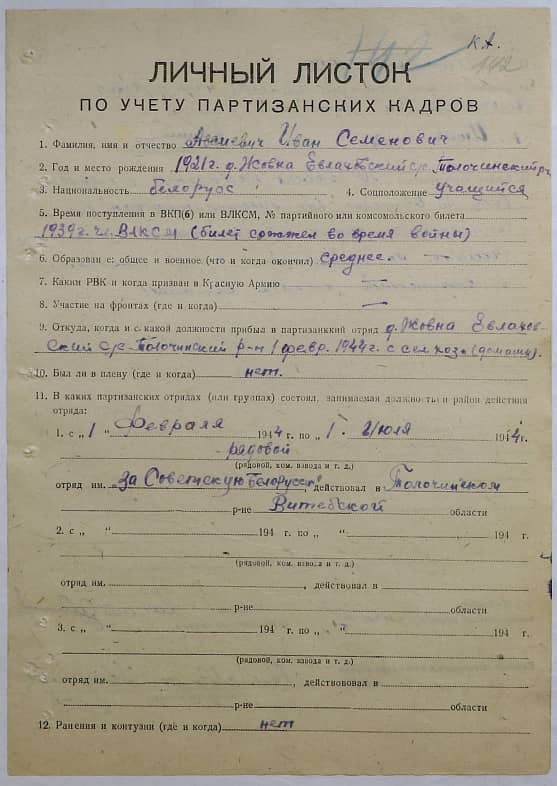 К.А.
142
ЛИЧНЫЙ ЛИСТОК
ПО УЧЕТУ ПАРТИЗАНСКИХ КАДРОВ
1. Фамилия, имя и отчество Иван Семенович
2. Год и место рождения 1921г. д. Жовна Евлаховский с/с. Толочинский р-н
3. Национальность белорус 4. Соцположение учащийся
5. Время поступления в ВКП(б) или ВЛКСМ, № партийного или комсомольского билета
1939г. чл. ВЛКСМ (билет сожжен во время войны)
6. Образован е: общее и военное (что и когда окончил) среднее
7. Каким РВК и когда призван в Красную Армию —
8. Участие на фронтах (где и когда) —
9. Откуда, когда и с какой должности прибыл в партизанский отряд д. Жовна Евлахов-
ский с/с. Толочинский р-н 1 февр. 1944г. с сел. хоз. (домашн).
10. Был ли в плену (где и когда) нет.
11. В каких партизанских отрядах (или группах) состоял, занимаемая должность и район действия
отряда:
1. с „1" Февраля 1944 г. по „1" Июля 1944г.
рядовой
(рядовой, ком. взвода и т. д.)
отряд им. „За Советскую Белоруссию", действовал в Толочинском
р-не Витебской области
2. с „ " 194 г. по „ " 194 г.
(рядовой, ком. взвода и т. д.)
отряд им. , действовал в
р-не области
3. с „ " 194 г. по „ " 194 г.
(рядовой, ком. взвода и т. д.)
отряд им. , действововал в
р-не области
12. Ранения и контузии (где и когда) нет